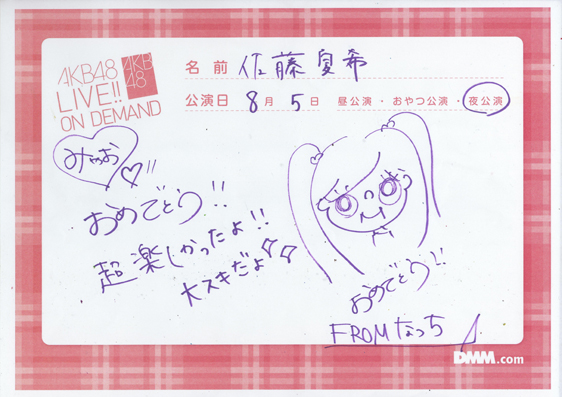 AKB48
LIVE!!
ON DEMAND
AKB
48
名前 佐藤夏希
公演日 8月5日 昼公演・おやつ公演・夜公演
みゃお
おめでとう!!
超楽しかったよ!!
大スキだよ
おめでとう!!
FROMなっち
DMM.com